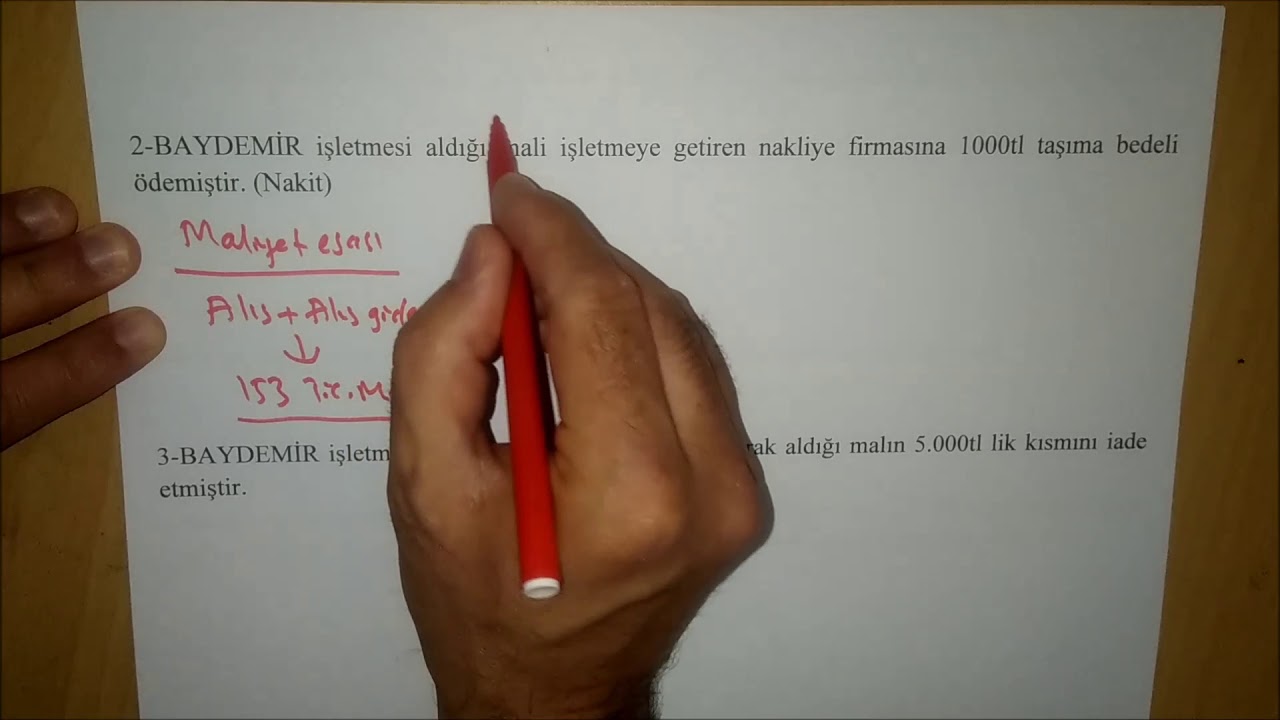 2-BAYDEMİR işletmesi aldığı mali işletmeye getiren nakliye firmasına 1000tl taşıma bedeli
ödemiştir. (Nakit)
Maliyet esası
Alış + Alış
153 Tic. M
3-BAYDEMİR aldığı malın 5.000tl lik kısmını iade
etmiştir.